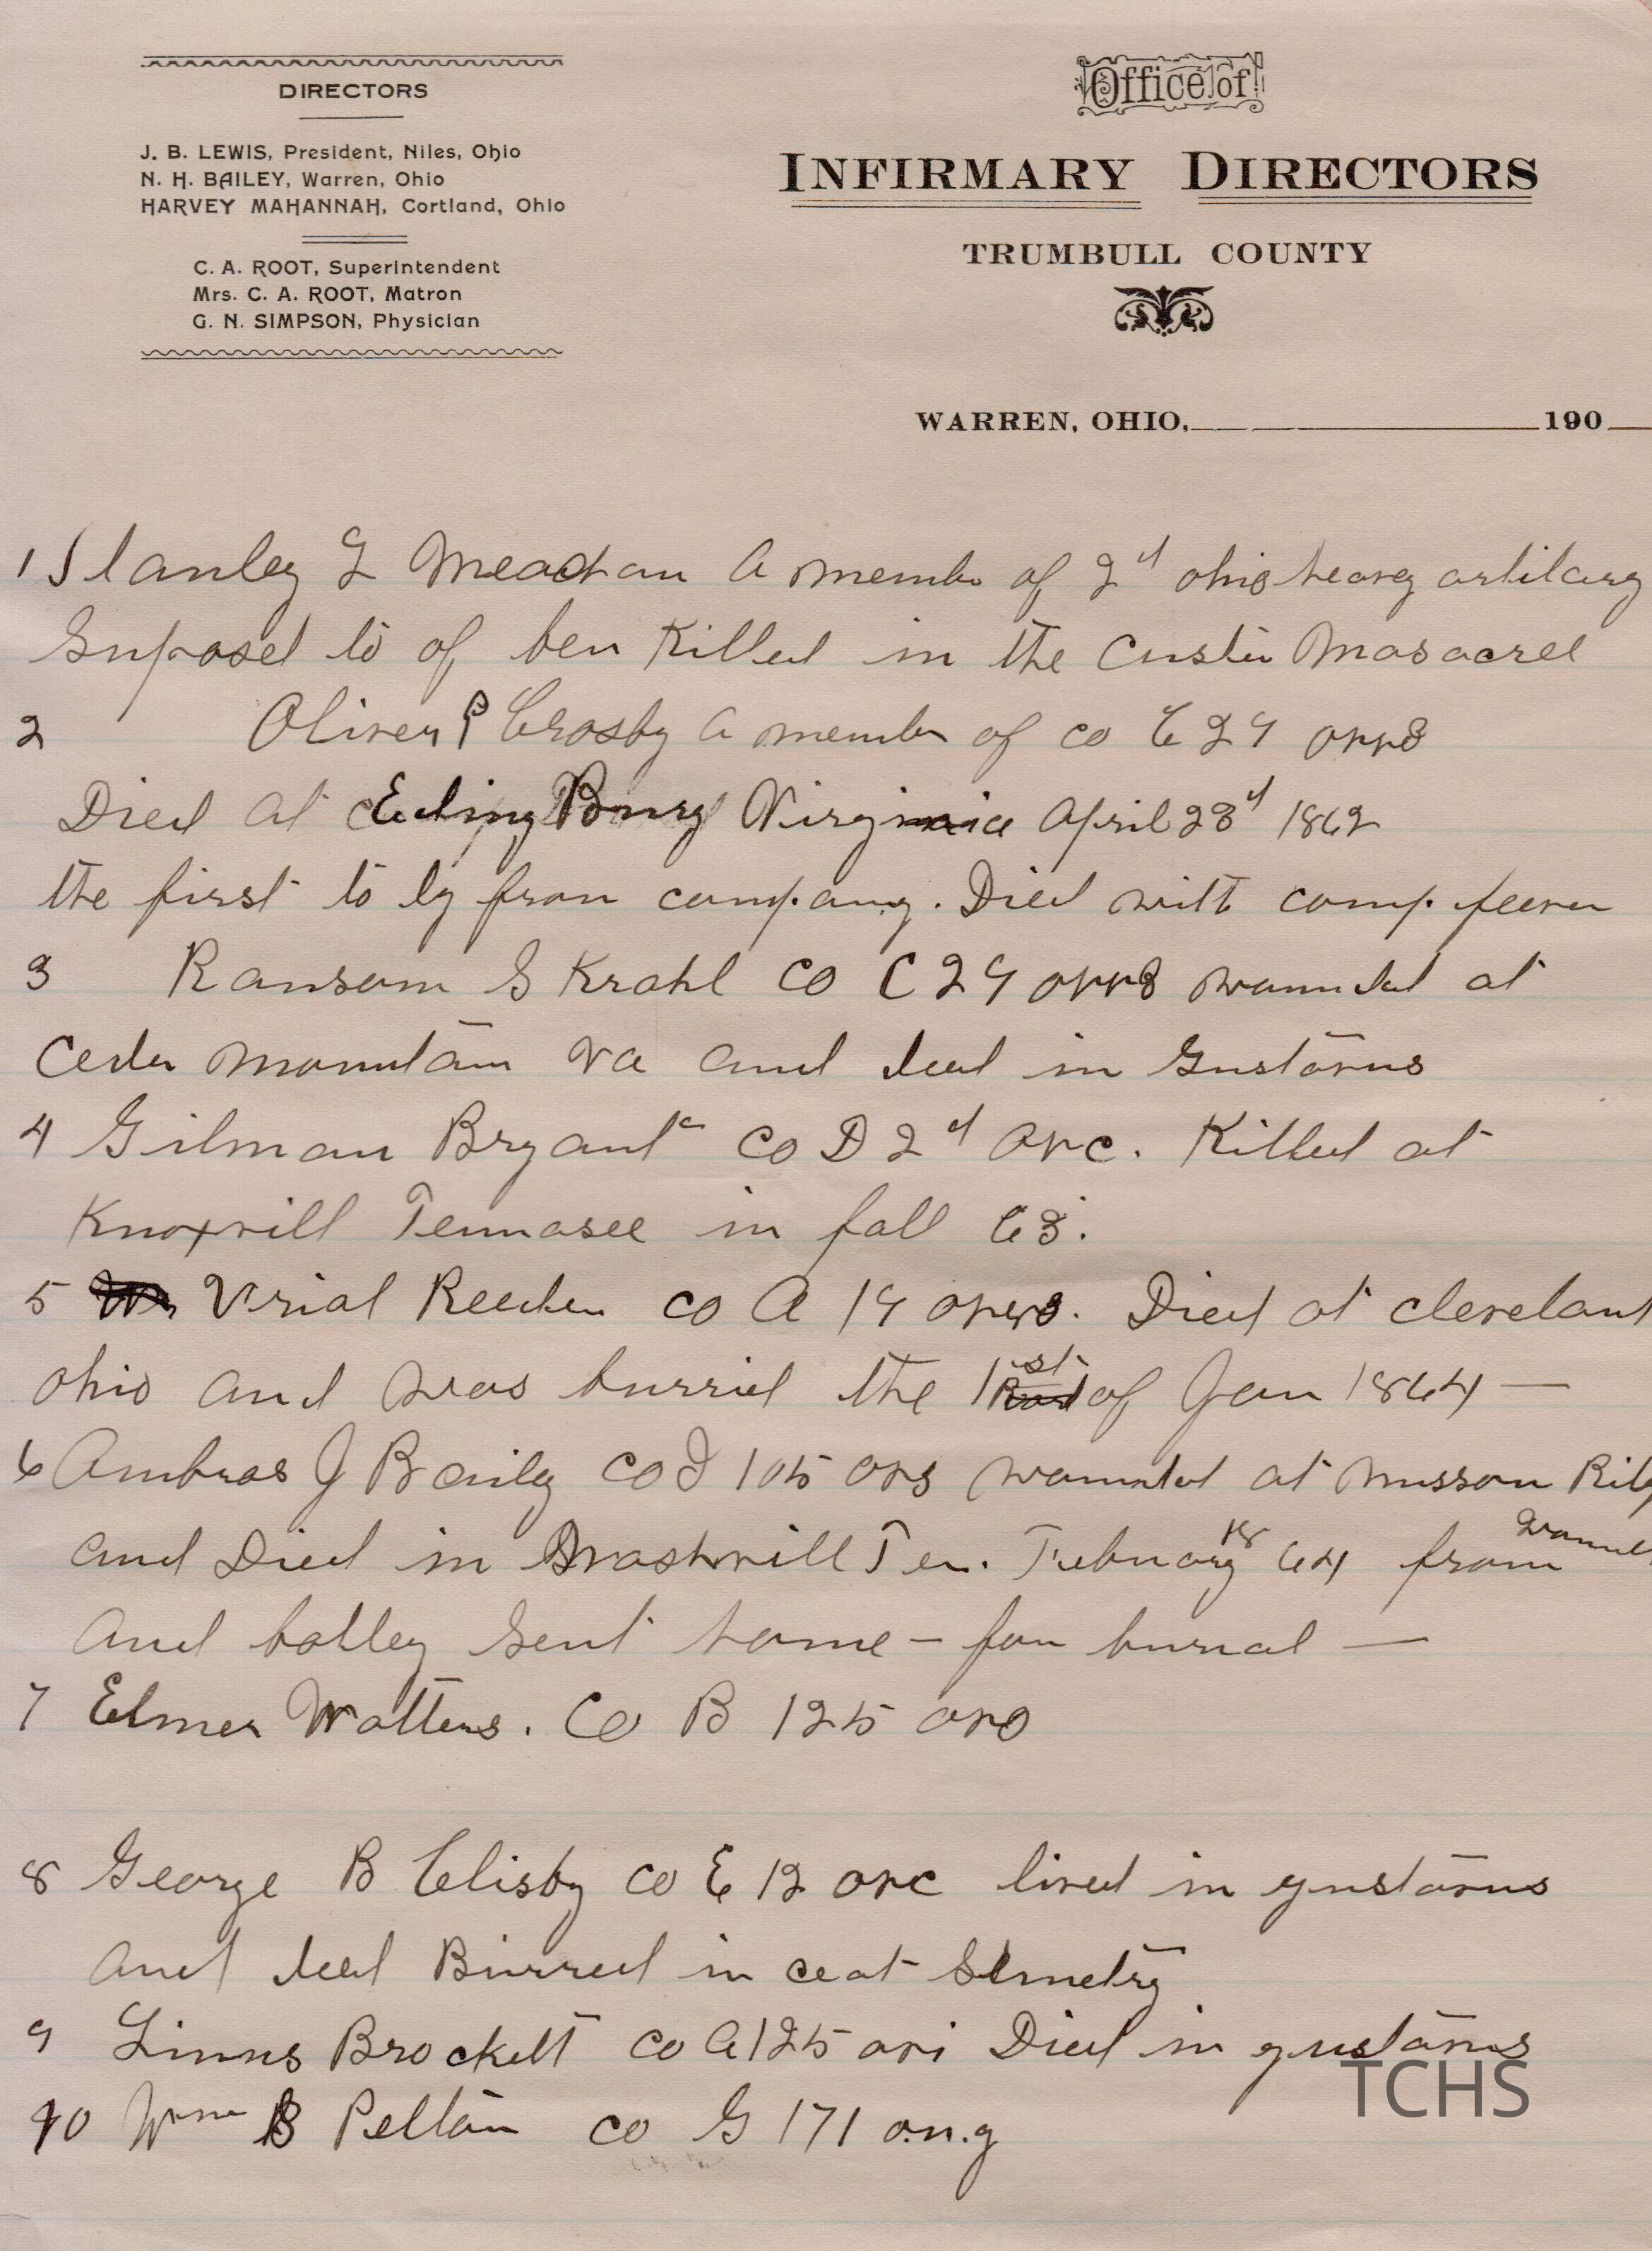 DIRECTORS
J. B. LEWIS, President, Niles, Ohio
N. H. BAILEY, Warren, Ohio
HARVEY MAHANNAH, Cortland, Ohio
C. A. ROOT, Superintendent
Mrs. C. A. ROOT, Matron
G. N. SIMPSON, Physician
Office of
INFIRMARY DIRECTORS
TRUMBULL COUNTY
WARREN, OHIO, 190
1 Stanley G a member of 2d ohio heavy artilary
Suposed to of ben Killed in the Custer Masacree
2 Oliver P Crosby a member of co C 29
Died at Virginia April 23d 1862
the first to from company. Died with camp feever
3 Ransom S Krahl co C 29 wounded at
Ceder mountain va and died in Gustavus
4 Gilman Bryant co D 2d ovc. Killed at
Knoxvill Tennasee in fall 63.
5 Urial Reeder co A 19 Died at cleveland
ohio and was burried the 1st of Jan 1864 —
6 Ambras J Baily co I 105 ovs wounded at Misson
and Died in Nashvill Ten. Febuary 18 64 from
and boddey sent home – for burial —
7 Elmer Watters. Co B 125 ovo
8 George B Clisby co E 12 ovc lived in gustavus
and died Burred in ceat Semetry
9 Linns Brockett co A 125 ovi Died in gustavus
10 Wm B Pelton co G 171 o.n.g
TCHS